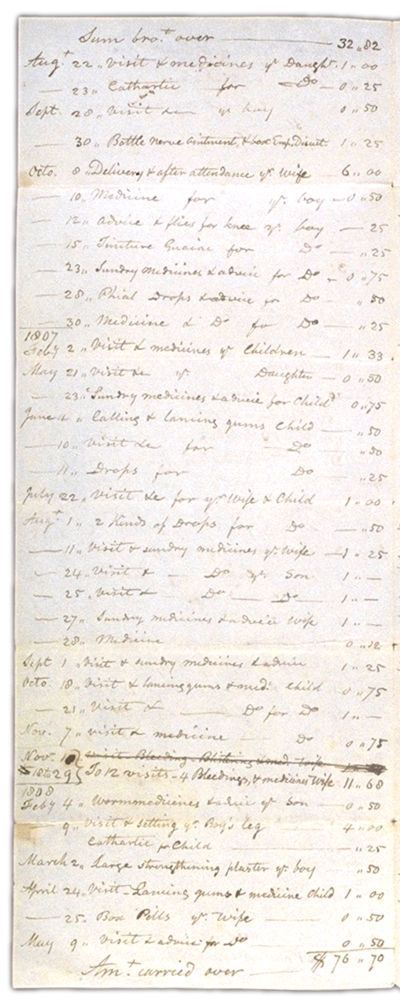 Sum bro.t over — 32 .. 82
Aug.t 22 .. Visit & medicines yr Daught.r 1 .. 00
— 23 .. Cathartic for Do — 0 .. 25
Sept. 28 .. Visit &c yr boy 0 .. 50
— 30 .. Bottle nerve ointment, & box 1 .. 25
Octo. 8 .. Delivery & after attendance yr Wife 6 .. 00
— 10 .. Medicine for yr boy — 0 .. 50
— 12 .. Advice & flies for knee yr boy — 25
— 15 .. Tincture Guaiac for Do — .. 25
— 23 .. Sundry medicines & advice for Do — 0 .. 75
— 28 .. Phial Drops & advice for Do — .. 50
— 30 .. Medicine & Do for Do — .. 25
1807
Feby 2 .. Visit & medicines yr Children — 1 .. 33
May 21 .. Visit &c yr Daughter — 0 .. 50
— 23 .. Sundry medicines & advice for Child 0 .. 75
June 4 .. Calling & lancing gums Child — .. 50
— 10 .. Visit &c for Do .. 50
— 11 .. Drops for Do .. 25
July 22 .. Visit &c for yr Wife & Child 1 .. 00
Aug.t 1 .. 2 Kinds of Drops for Do — .. 50
— 11 .. Visit & sundry medicines yr Wife — 1 .. 25
— 24 .. Visit & — Do yr Son 1 .. —
— 25 .. Visit & Do — Do — 1 .. —
— 27 .. Sundry medicines & advice Wife 1 .. —
— 28 .. Medicine — 0 .. 12
Sept 1 .. Visit & sundry medicines & advice 1 .. 25
Octo. 18 .. Visit & lancing gums & med. Child 0 .. 75
— 21 .. Visit & — Do for Do 1 .. —
Nov. 7 .. Visit & medicine — Do 0 .. 75
Nov. Visit Bleeding Blistering & med. Wife
& 18th 29 } To 12 visits - 4 Bleedings, & medicines Wife 11 .. 68
1808
Feby 4 .. Worm medicines & advice yr Son — 0 .. 50
— 9 .. Visit & setting yr Boy's leg 4 .. 00
Cathartic for Child — .. 25
March 2 .. Large strengthining plaster yr boy .. 50
April 24 .. Visit - Lancing gums & medicine Child 1 .. 00
— 25 .. Box Pills yr Wife — 0 .. 50
May 9 .. Visit & advice for Do — 0 .. 50
Am.t carried over — $ 76 .. 70